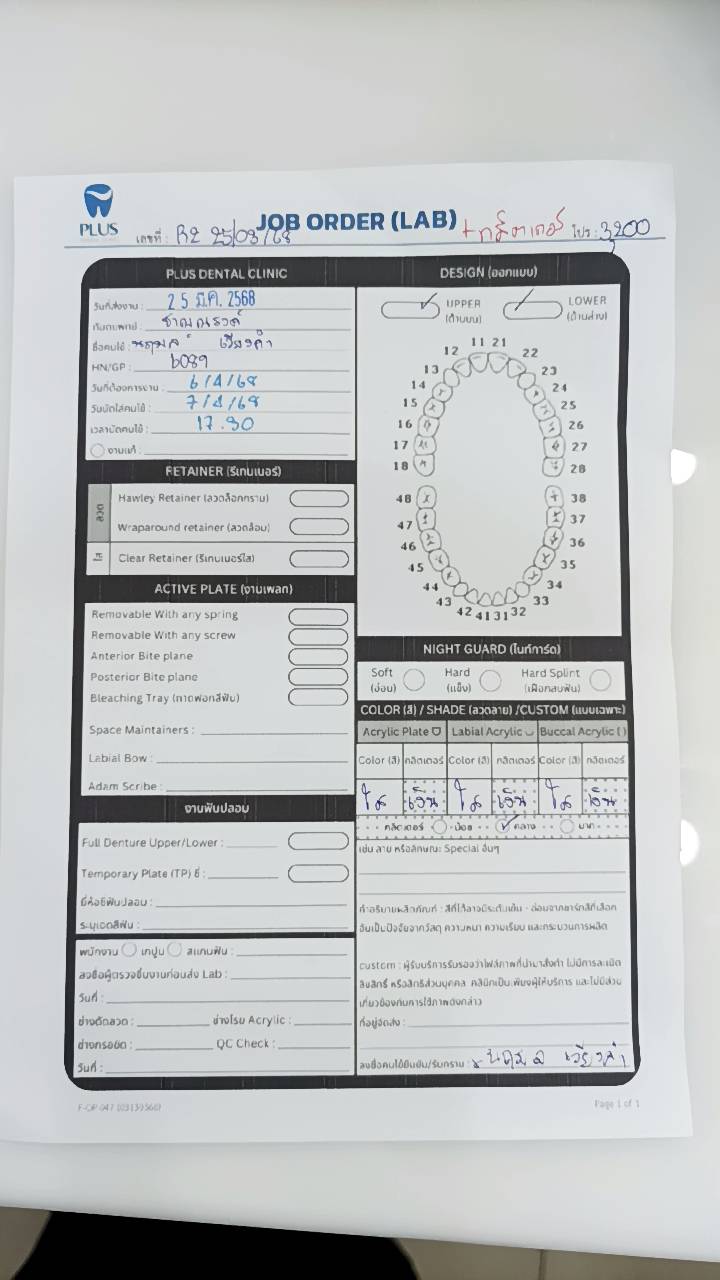 PLUS
JOB ORDER (LAB)
เลขที่ : R2 25/03/68 +กลิตเตอร์ โปร : 3,200
PLUS DENTAL CLINIC
วันที่ส่งงาน : 25 มี.ค. 2568
ทันตแพทย์ :
ชื่อคนไข้ : นฤมล
HN/GP : 6089
วันที่ต้องการงาน : 6/4/68
วันนัดใส่คนไข้ : 7/4/68
เวลานัดคนไข้ : 17.30
งานแก้ :
RETAINER (รีเทนเนอร์)
ลวด
Hawley Retainer (ลวดล็อกกราม)
Wraparound retainer (ลวดล้อม)
ใส
Clear Retainer (รีเทนเนอร์ใส)
ACTIVE PLATE (งานเพลท)
Removable With any spring
Removable With any screw
Anterior Bite plane
Posterior Bite plane
Bleaching Tray (ถาดฟอกสีฟัน)
Space Maintainers :
Labial Bow :
Adam Scribe :
งานฟันปลอม
Full Denture Upper/Lower :
Temporary Plate (TP) ซี่ :
ยี่ห้อซี่ฟันปลอม :
ระบุเฉดสีฟัน :
พนักงาน เทปูน สแกนฟัน :
ลงชื่อผู้ตรวจชิ้นงานก่อนส่ง Lab :
วันที่ :
ช่างดัดลวด : ช่างโรย Acrylic :
ช่างกรอขัด : QC Check :
วันที่ :
DESIGN (ออกแบบ)
UPPER
(ด้านบน)
LOWER
(ด้านล่าง)
11 21
12 22
13 23
14 24
15 25
16 26
17 27
18 28
48 38
47 37
46 36
45 35
44 34
43 33
42 41 31 32
NIGHT GUARD (ไนท์การ์ด)
Soft
(อ่อน)
Hard
(แข็ง)
Hard Splint
(เฝือกสบฟัน)
COLOR (สี) / SHADE (ลวดลาย) /CUSTOM (แบบเฉพาะ)
Acrylic Plate Labial Acrylic Buccal Acrylic
Color (สี) กลิตเตอร์ Color (สี) กลิตเตอร์ Color (สี) กลิตเตอร์
ใส เงิน ใส เงิน ใส เงิน
กลิตเตอร์ น้อย กลาง มาก
เช่น ลาย หรือลักษณะ Special อื่นๆ
คำอธิบายผลิตภัณฑ์ : สีที่ได้อาจมีระดับเข้ม - อ่อนจากชาร์ทสีที่เลือก
อันเป็นปัจจัยจากวัสดุ ความหนา ความเรียบ และกระบวนการผลิต
custom : ผู้รับบริการรับรองว่าไฟล์ภาพที่นำมาสั่งทำ ไม่มีการละเมิด
ลิขสิทธิ์ หรือสิทธิส่วนบุคคล คลินิกเป็นเพียงผู้ให้บริการ และไม่มีส่วน
เกี่ยวข้องกับการใช้ภาพดังกล่าว
ที่อยู่จัดส่ง :
ลงชื่อคนไข้ยืนยัน/รับทราบ : นฤมล
Page 1 of 1